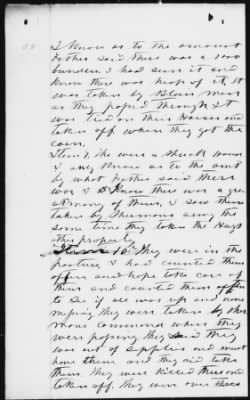 I know as to the amount
Father said there was a 100
bundles I had seen it and
know there was heap of it. It
was taken by Blair men
as they passed through It
was tied on their Horses and
taken off when they got the
corn.
Item 9, the were a Shoats
I only know as to the amt
by what Father said there
was I do know there was a gre
at many of them, I saw them
taken by Shermans army the
same time they taken the Hogs
other property
Item 10. They were in the
pasture, I had counted them
often and hope take care of
them and counted them often
to see if all was up and none
missing they were taken by Sher
mans command when they
were passing, they said they
was out of supplies and must
have them and they did take
them, they were killed there and
taken off. they were over there